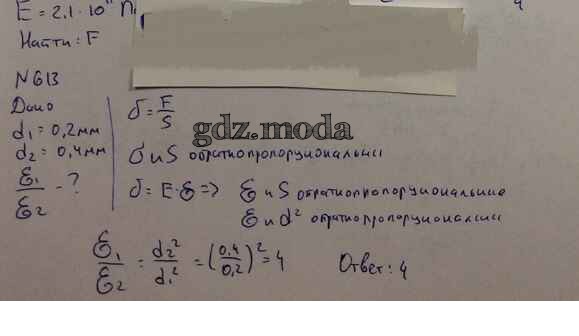 E = 2.1 · 10¹¹ П
Найти: F
N613
Дано
d₁ = 0,2мм
d₂ = 0,4мм
ℰ₁/ℰ₂ - ?
σ = F/S
gdz.moda
σ и S обратнопропорциональны
σ = E·ℰ => ℰ и S обратнопропорциональные
ℰ и d² обратнопропорциональны
ℰ₁/ℰ₂ = d₂²/d₁² = (0,4/0,2)² = 4
Ответ: 4